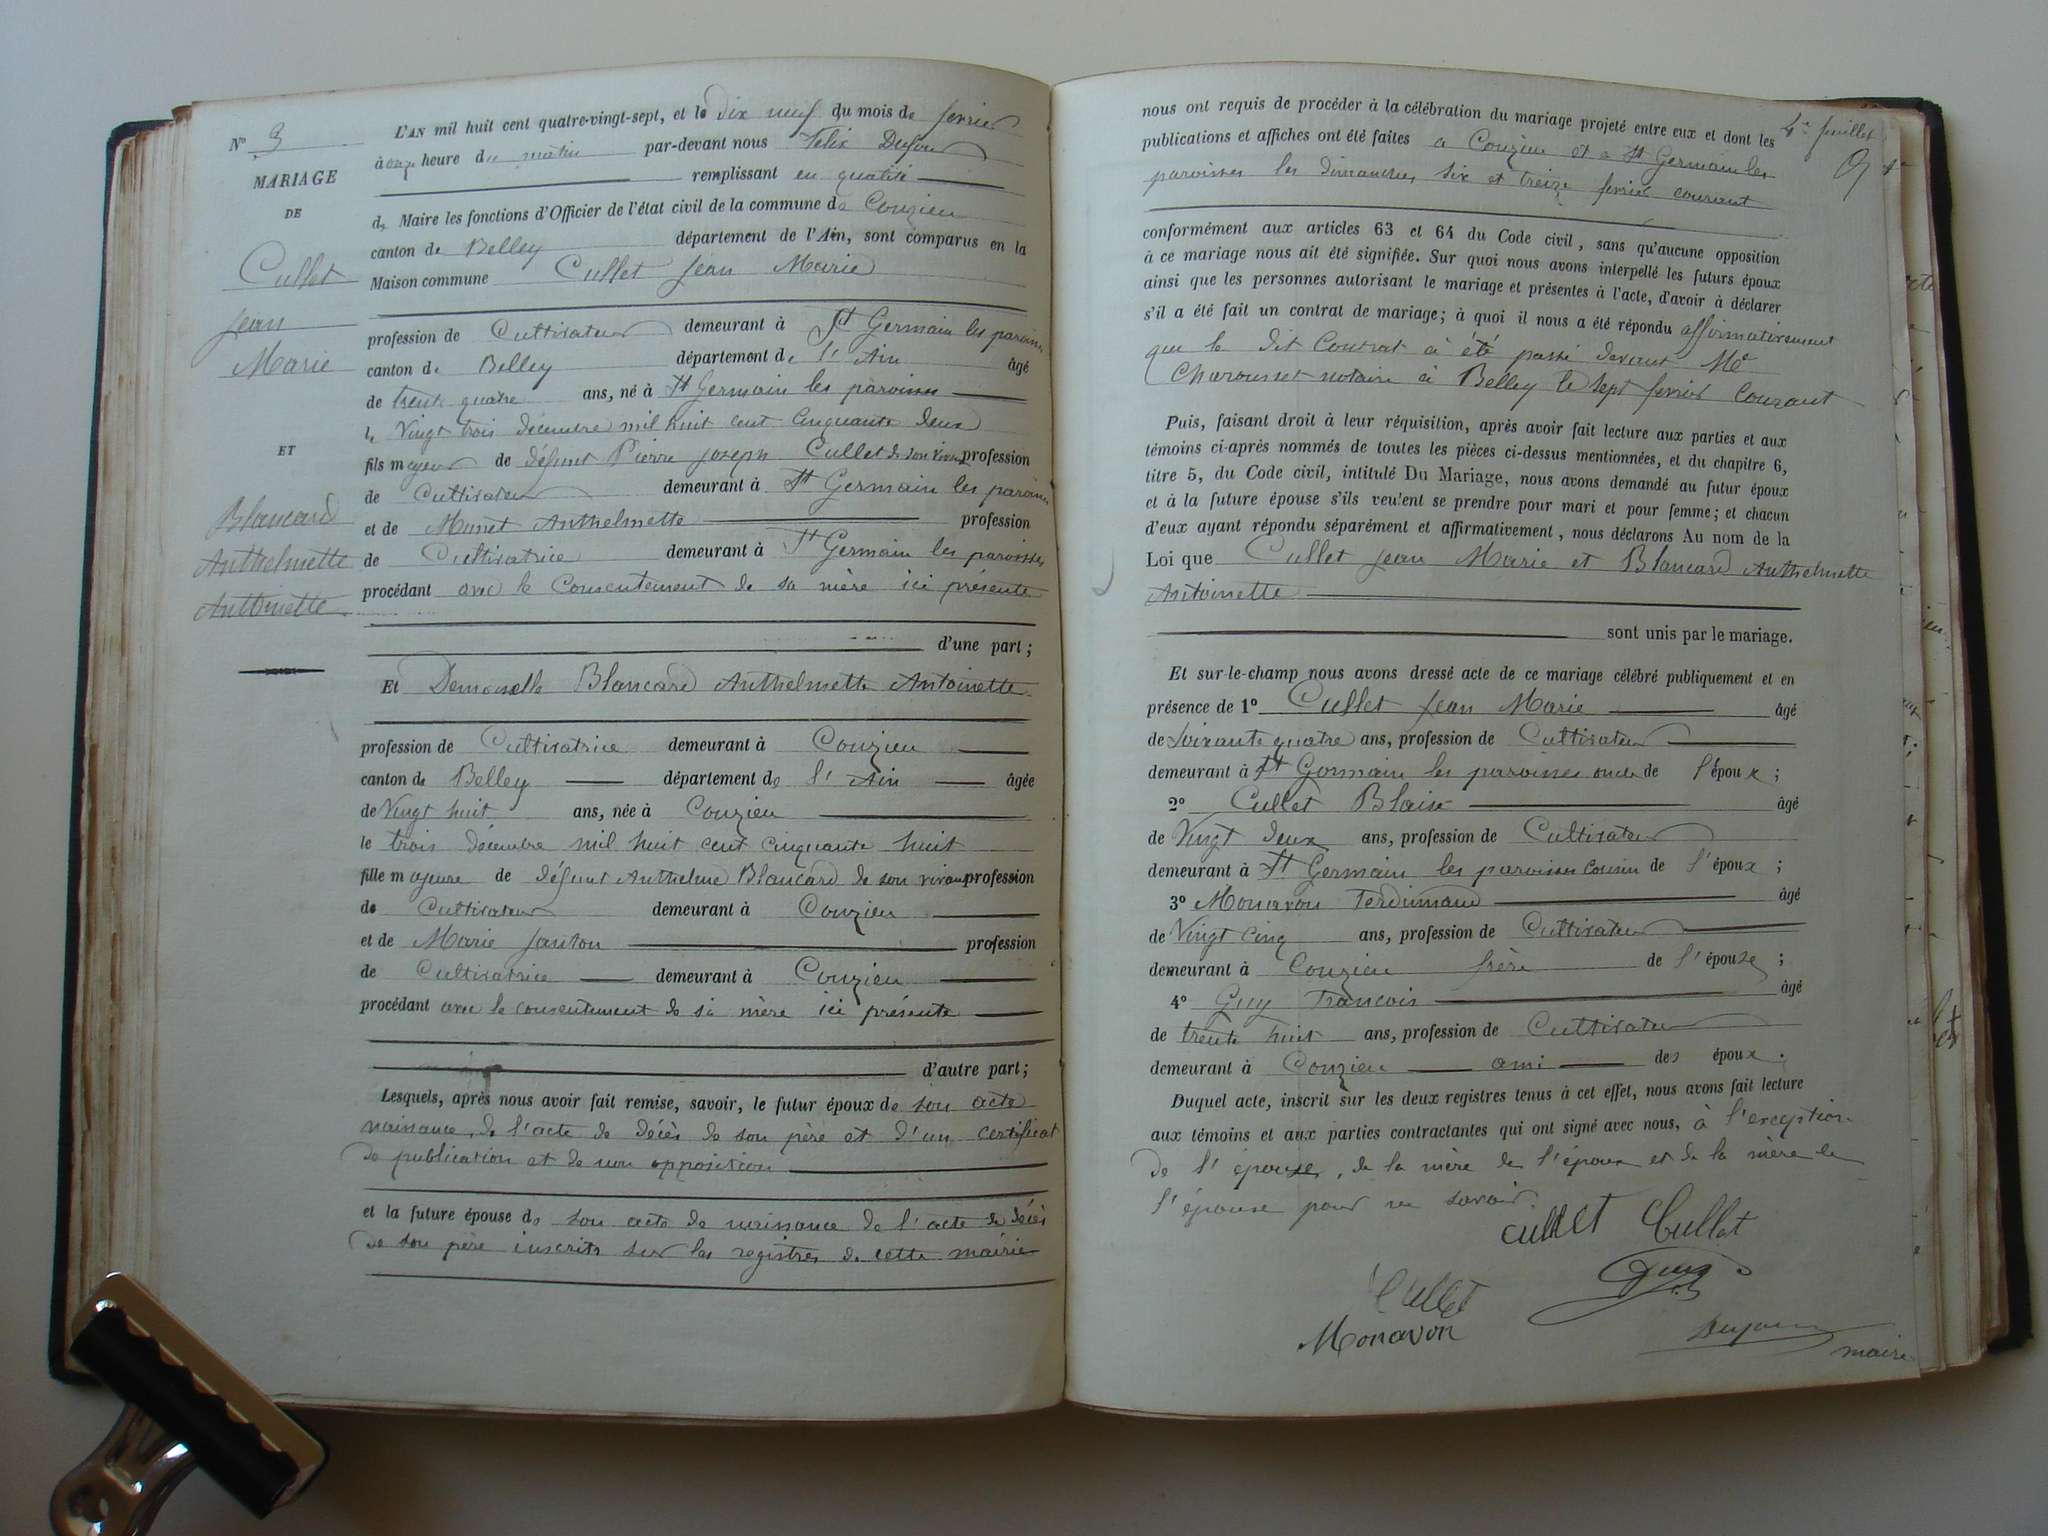 L'AN mil huit cent quatre-vingt-sept, et le dix neuf du mois de fevrier
N° 3
à onze heure du matin par-devant nous Felix Dufour
remplissant en qualité
MARIAGE
DE
de Maire les fonctions d'Officier de l'état civil de la commune de Conzieu
canton de Belley département de l'Ain, sont comparus en la
Cullet
Maison commune Cullet Jean Marie
Jean
profession de Cultivateur demeurant à St Germain les paroisses
Marie
canton de Belley département de l'Ain âgé
de trente quatre ans, né à St Germain les paroisses
le Vingt trois décembre mil huit cent cinquante deux
ET
fils majeur de défunt Pierre Joseph Cullet de son vivant profession
de Cultivateur demeurant à St Germain les paroisses
Blancard
et de Munet Anthelmette profession
Anthelmette
de Cultivatrice demeurant à St Germain les paroisses
Antoinette
procédant avec le Consentement de sa mère ici présente
d'une part ;
Et Demoiselle Blancard Anthelmette Antoinette
profession de Cultivatrice demeurant à Conzieu
canton de Belley département de l'Ain âgée
de Vingt huit ans, née à Conzieu
le trois décembre mil huit cent cinquante huit
fille majeure de défunt Anthelme Blancard de son vivant profession
de Cultivateur demeurant à Conzieu
et de Marie Janton profession
de Cultivatrice demeurant à Conzieu
procédant avec le consentement de sa mère ici présente
d'autre part ;
Lesquels, après nous avoir fait remise, savoir, le futur époux de son acte
naissance, de l'acte de décès de son père et d'un certificat
de publication et de non opposition
et la future épouse de son acte de naissance de l'acte de décès
de son père inscrits sur les registres de cette mairie
nous ont requis de procéder à la célébration du mariage projeté entre eux et dont les
4e feuillet
publications et affiches ont été faites a Conzieu et a St Germain les
paroisses les dimanches six et treize fevrier courant
conformément aux articles 63 et 64 du Code civil, sans qu'aucune opposition
à ce mariage nous ait été signifiée. Sur quoi nous avons interpellé les futurs époux
ainsi que les personnes autorisant le mariage et présentes à l'acte, d'avoir à déclarer
s'il a été fait un contrat de mariage ; à quoi il nous a été répondu affirmativement
que le dit Contrat a été passé devant Me
Charousset notaire à Belley le sept fevrier courant
Puis, faisant droit à leur réquisition, après avoir fait lecture aux parties et aux
témoins ci-après nommés de toutes les pièces ci-dessus mentionnées, et du chapitre 6,
titre 5, du Code civil, intitulé Du Mariage, nous avons demandé au futur époux
et à la future épouse s'ils veulent se prendre pour mari et pour femme ; et chacun
d'eux ayant répondu séparément et affirmativement, nous déclarons Au nom de la
Loi que Cullet Jean Marie et Blancard Anthelmette
Antoinette
sont unis par le mariage.
Et sur-le-champ nous avons dressé acte de ce mariage célébré publiquement et en
présence de 1° Cullet Jean Marie âgé
de Soixante quatre ans, profession de Cultivateur
demeurant à St Germain les paroisses oncle de l'époux ;
2° Cullet Blaise âgé
de Vingt deux ans, profession de Cultivateur
demeurant à St Germain les paroisses cousin de l'époux ;
3° Monavon Ferdinand âgé
de Vingt cinq ans, profession de Cultivateur
demeurant à Conzieu frère de l'épouse ;
4° Guy Francois âgé
de trente huit ans, profession de Cultivateur
demeurant à Conzieu ami des époux.
Duquel acte, inscrit sur les deux registres tenus à cet effet, nous avons fait lecture
aux témoins et aux parties contractantes qui ont signé avec nous, à l'exception
de l'épouse, de la mère de l'époux et de la mère de
l'épouse pour ne savoir.
Cullet Cullet
Cullet Guy
Monavon
Dufour
maire